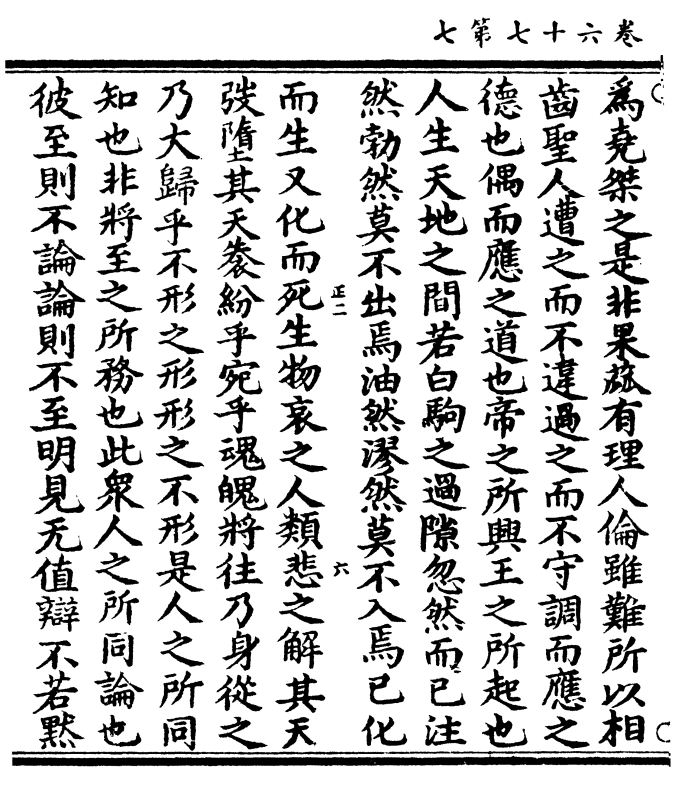 卷六十七第七
爲堯桀之是非果蓏有理人倫雖難所以相
齒聖人遭之而不違過之而不守調而應之
德也偶而應之道也帝之所興王之所起也
人生天地之間若白駒之過隙忽然而已注
然勃然莫不出焉油然漻然莫不入焉已化
正二
六
而生又化而死生物哀之人類悲之解其天
弢墮其天袠紛乎宛乎魂魄將往乃身從之
乃大歸乎不形之形形之不形是人之所同
知也非將至之所務也此衆人之所同論也
彼至則不論論則不至明見无值辯不若默